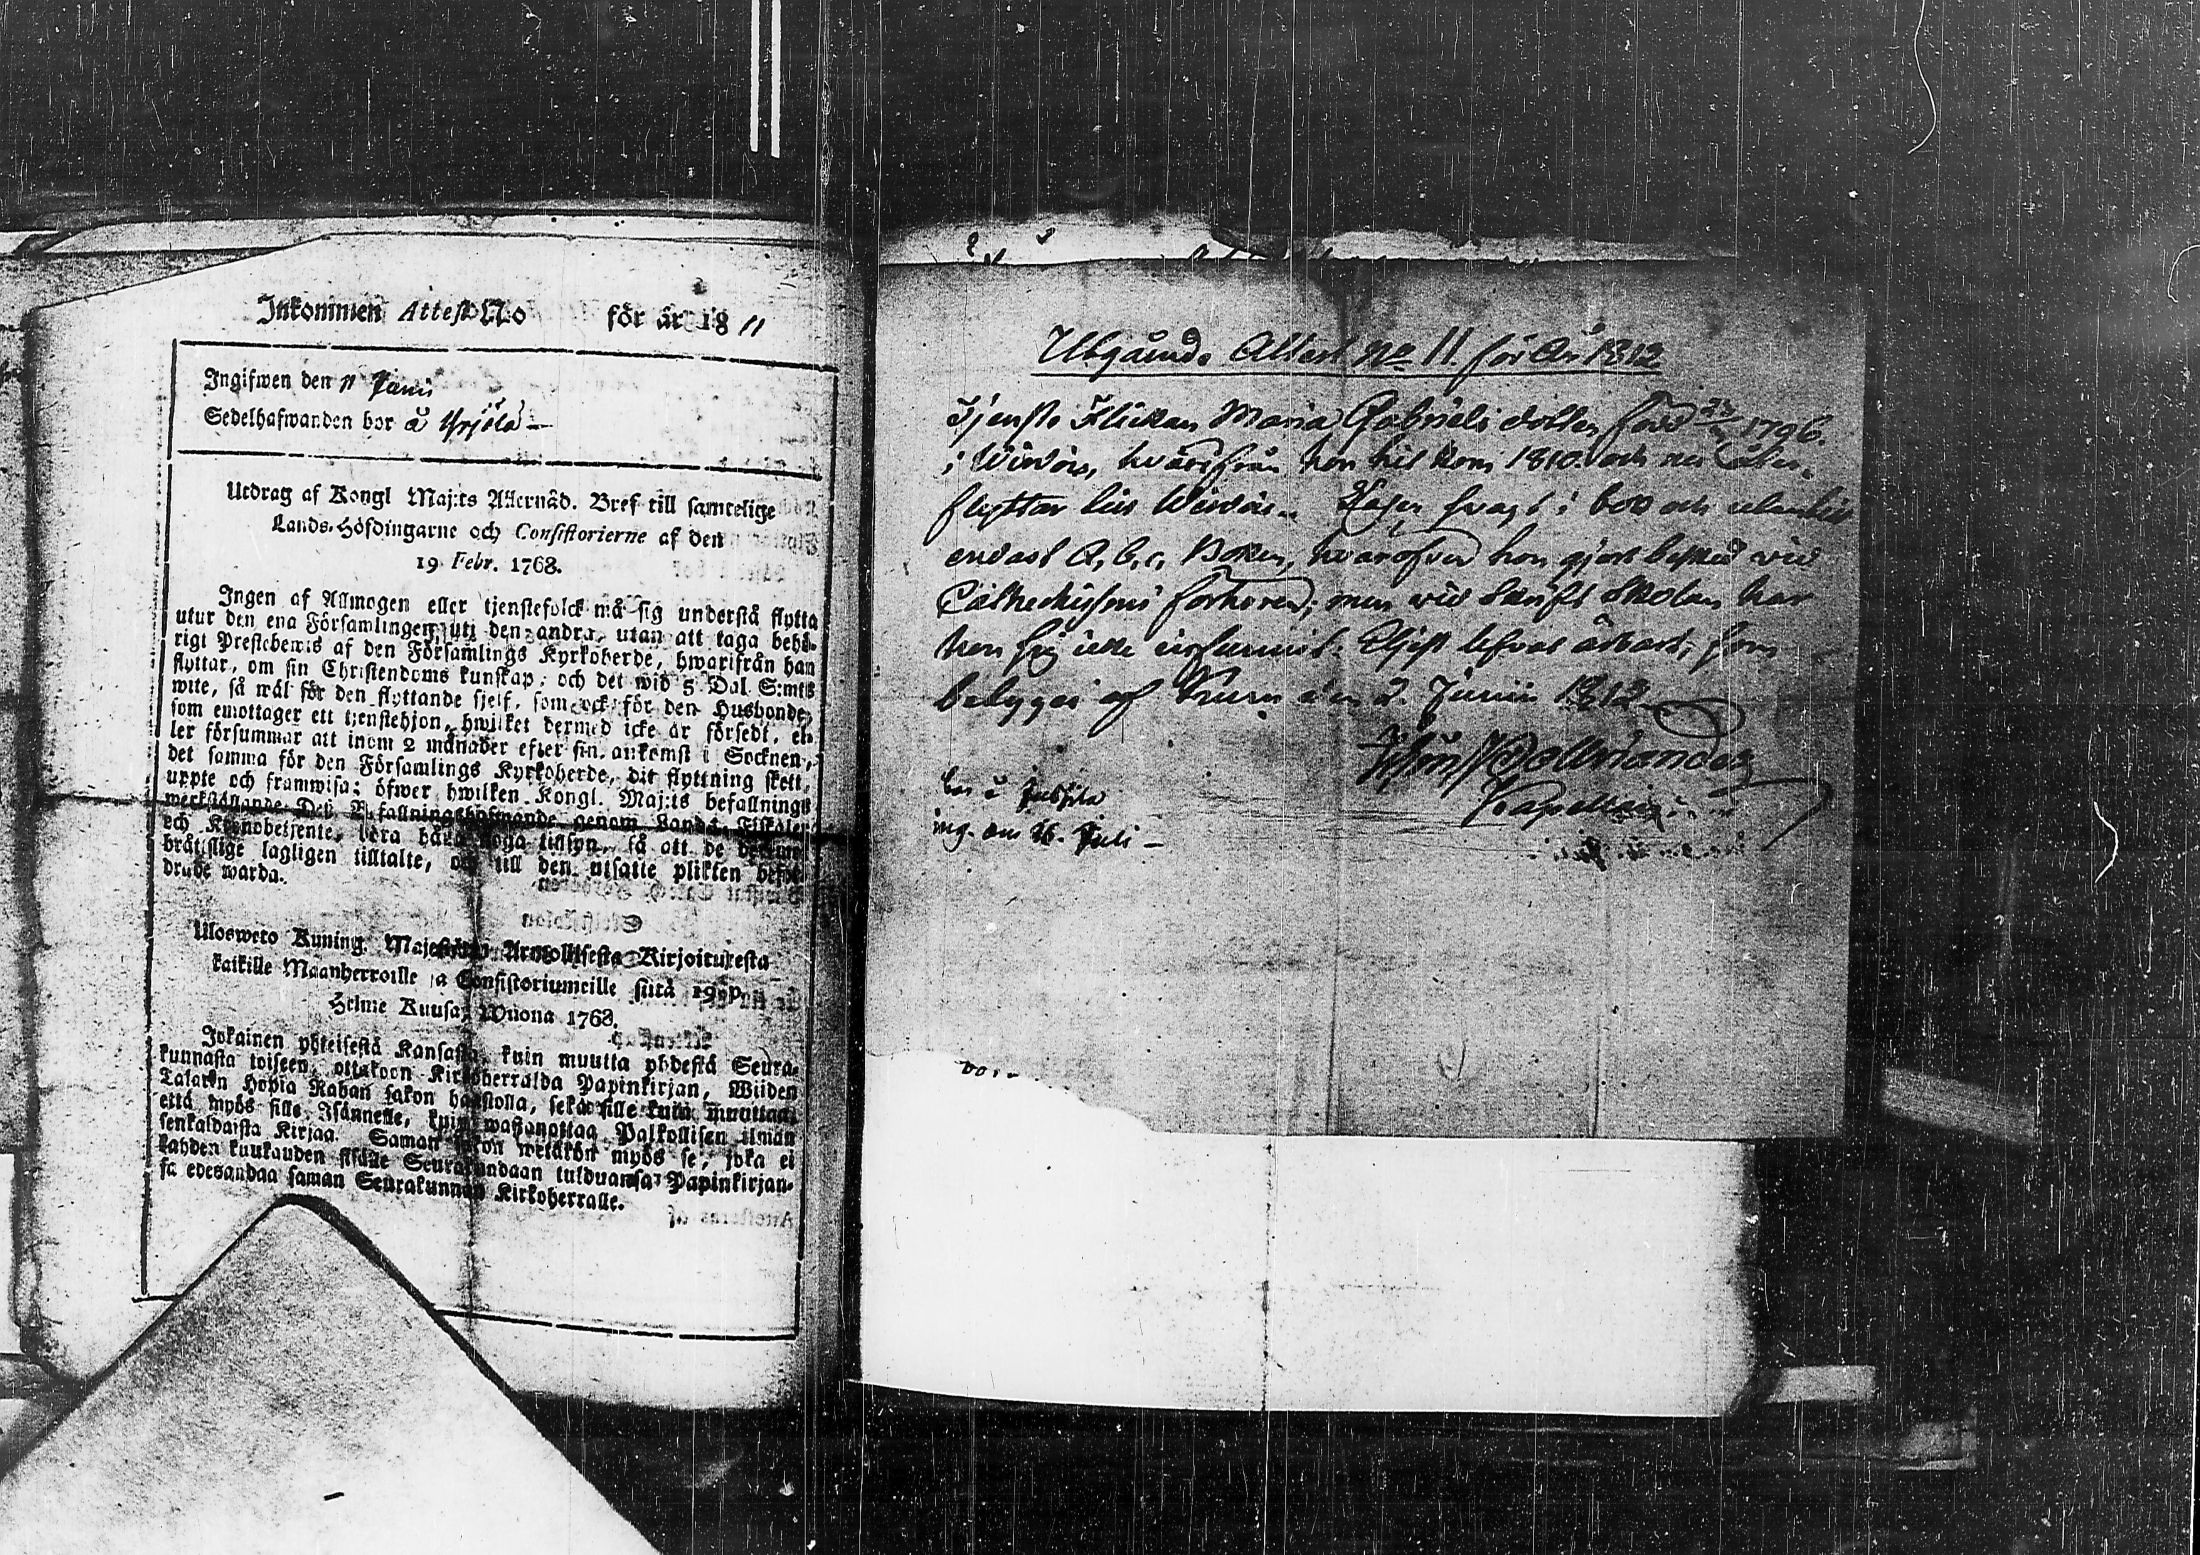 Inkommen Attest No för år 18 11
Ingifwen den 11 Junii
Sedelhafwanden bor å Yrjölä
Utdrag af Kongl Maj:ts Allernåd. Bref till samtelige
Lands-Höfdingarne och Consistorierne af den
19 Febr. 1768.
Ingen af Allmogen eller tjenstefolck må sig understå flytta
utur den ena Församlingen uti den andra, utan att taga behö-
rigt Prestebewis af den Församlings Kyrkoherde, hwarifrån han
flyttar, om sin Christendoms kunskap; och det wid 5 Dal. S:mts
wite, så wäl för den flyttande sjelf, som ock för den Husbonde,
som emottager ett tjenstehjon, hwilket dermed icke är försedt, el-
ler försummar att inom 2 månader efter sin ankomst i Socknen,
det samma för den Församlings Kyrkoherde, dit flyttning skett,
uppte och framwisa; öfwer hwilken Kongl. Maj:ts befallnings
werkställande Deß Befallningshafwande genom Lands-Fiskaler
och Kronobetjente, böra hafwa noga tillsyn, så att de
bråtslige lagligen tilltalte, och till den utsatte plikten befor-
drade warda.
Ulosweto Kuning. Majestätin Armollisesta Kirjoituxesta
kaikille Maanherroille ja Consistoriumeille siitä 19 p.
Helme Kuusa, Wuona 1768.
Jokainen yhteisestä Kansasta, kuin muutta yhdestä Seura-
kunnasta toiseen, ottakoon Kirkoherralda Papinkirjan, Wiiden
Talarin Hopia Rahan sakon haastolla, sekä sille kuin muuttaa,
että myös sille Isännelle, kuin wastanottaa Palkollisen ilman
senkaldaista Kirjaa. Saman sakon wetäkön myös se, joka ei
kahden kuukauden sisälle Seurakundaan tulduansa Papinkirjan-
sa edesandaa saman Seurakunnan Kirkoherralle.
Utgående Attest No 11. för År 1812
Tjenste Flickan Maria Gabriels dotter, född 1796.
i Wirdois, hvarifrån hon hit kom 1810. och nu åter-
flyttar till Wirdois. Läser svagt i bok och utantill
endast A, b, c, Boken, hvaröfver hon gjort besked wid
Cathechismi förhören; men wid Skrift Skolan har
hon sig icke infunnit. Eljest lefvat ärbart; som
betygas af Kuru den 2. Junii 1812.
Kapellan
bor å
ing. den 26. Juli